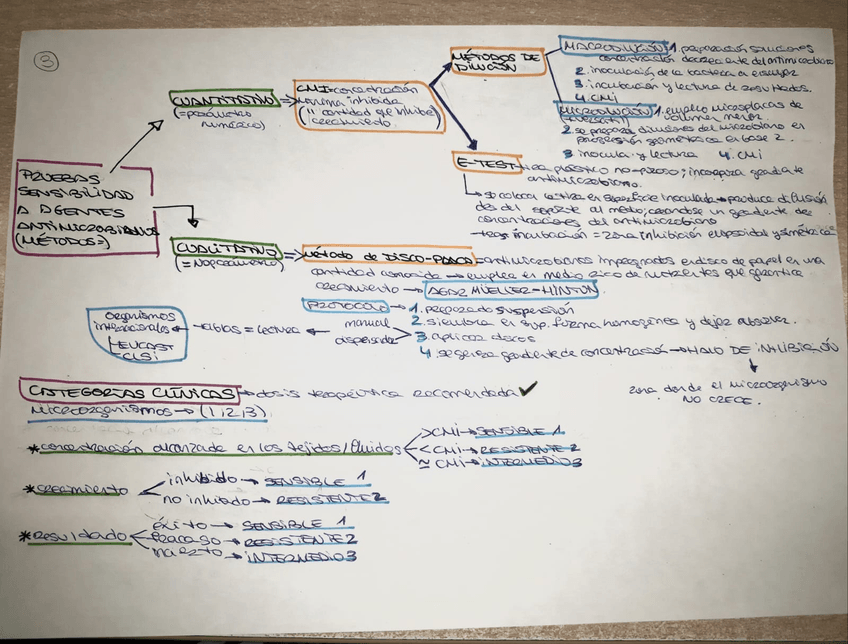 3
PRUEBAS
SENSIBILIDAD
A AGENTES
ANTIMICROBIANOS
(MÉTODOS=)
CUANTITATIVO
(=parámetro
numérico)
CMI=concentración
inhibida
cantidad q inhibe
crecimiento
MÉTODOS DE
DILUCIÓN
MACRODILUCIÓN 1. preparación soluciones
concentración decreciente del antimicrobiano
2. inoculación de la bacteria a ensayar
3. incubación y lectura de resultados.
4. CMI
MICRODILUCIÓN 1. empleo microplacas de
volumen menor.
2. se prepara diluciones del microbiano en
progresión geométrica en base 2.
3. inocula y lectura 4. CMI
E-TEST=tira plástico no-poroso; incorpora gradiente
antimicrobiano.
→ se coloca la tira en superficie inoculada → produce difusión
des del soporte al medio, creandose un gradiente de
concentraciones del antimicrobiano
→ tras incubación = zona inhibición elipsoidal y simétrica
CUALITATIVO
(=No parámetro)
método de DISCO-PLACA=antimicrobianos impregnados en disco de papel en una
cantidad conocida → emplea en medio rico de nutrientes que garantiza
crecimiento → AGAR MÜELLER-HINTON
PROTOCOLO → 1. preparado suspensión
2. siembra en sup. forma homogénea y dejar absorber.
3 aplicar discos
manual
dispensador
← tablas = lectura
organismos
internacionales
EUCAST
CLSI
4. se genera gradiente de concentración → HALO DE INHIBICIÓN
zona donde el microorganismo
NO CRECE.
CATEGORÍAS CLÍNICAS → dosis terapéutica recomendada ✔
MICROORGANISMOS → (1, 2, 3)
*concentración alcanzada en los tejidos/fluidos
>CMI → SENSIBLE 1
<CMI → RESISTENTE 2
≃ CMI → INTERMEDIO 3
*crecimiento
inhibido → SENSIBLE 1
no inhibido → RESISTENTE 2
*Resultado
éxito → SENSIBLE 1
fracaso → RESISTENTE 2
incierto → INTERMEDIO 3